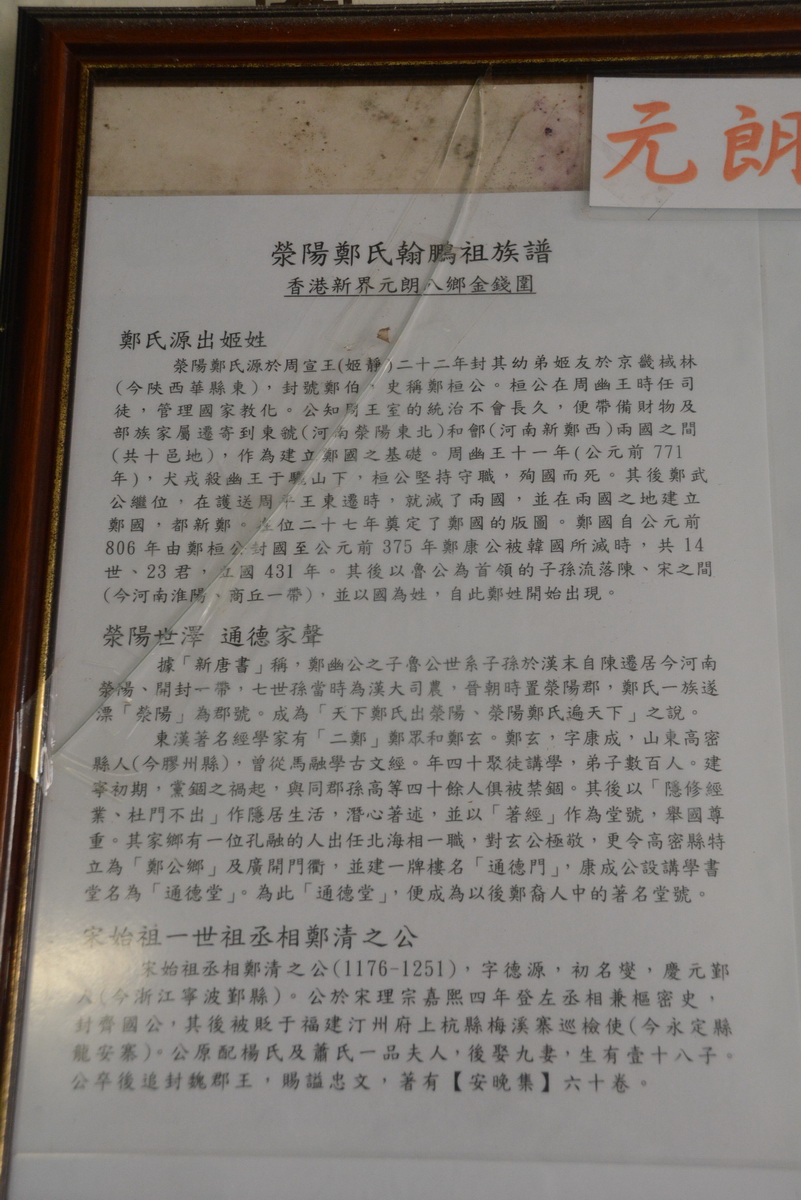 元朗
滎陽鄭氏翰鵬祖族譜
香港新界元朗八鄉金錢圍
鄭氏源出姬姓
滎陽鄭氏源於周宣王(姬靜)二十二年封其幼弟姬友於京畿棫林
(今陝西華縣東)，封號鄭伯，史稱鄭桓公。桓公在周幽王時任司
徒，管理國家教化。公知周王室的統治不會長久，便帶備財物及
部族家屬遷寄到東虢(河南滎陽東北)和鄶(河南新鄭西)兩國之間
(共十邑地)，作為建立鄭國之基礎。周幽王十一年(公元前 771
年)，犬戎殺幽王于驪山下，桓公堅持守職，殉國而死。其後鄭武
公繼位，在護送周平王東遷時，就滅了兩國，並在兩國之地建立
鄭國，都新鄭。在位二十七年奠定了鄭國的版圖。鄭國自公元前
806 年由鄭桓公封國至公元前 375 年鄭康公被韓國所滅時，共 14
世、23 君，立國 431 年。其後以魯公為首領的子孫流落陳、宋之間
(今河南淮陽、商丘一帶)，並以國為姓，自此鄭姓開始出現。
滎陽世澤 通德家聲
據「新唐書」稱，鄭幽公之子魯公世系子孫於漢末自陳遷居今河南
滎陽、開封一帶，七世孫當時為漢大司農，晉朝時置滎陽郡，鄭氏一族遂
漂「滎陽」為郡號。成為「天下鄭氏出滎陽、滎陽鄭氏遍天下」之說。
東漢著名經學家有「二鄭」鄭眾和鄭玄。鄭玄，字康成，山東高密
縣人(今膠州縣)，曾從馬融學古文經。年四十聚徒講學，弟子數百人。建
寧初期，黨錮之禍起，與同郡孫高等四十餘人俱被禁錮。其後以「隱修經
業、杜門不出」作隱居生活，潛心著述，並以「著經」作為堂號，舉國尊
重。其家鄉有一位孔融的人出任北海相一職，對玄公極敬，更令高密縣特
立為「鄭公鄉」及廣開門衢，並建一牌樓名「通德門」，康成公設講學書
堂名為「通德堂」。為此「通德堂」，便成為以後鄭裔人中的著名堂號。
宋始祖一世祖丞相鄭清之公
宋始祖丞相鄭清之公(1176-1251)，字德源，初名燮，慶元鄞
人(今浙江寧波鄞縣)。公於宋理宗嘉熙四年登左丞相兼樞密史，
封齊國公，其後被貶于福建汀州府上杭縣梅溪寨巡檢使(今永定縣
龍安寨)。公原配楊氏及蕭氏一品夫人，後娶九妻，生有壹十八子。
公卒後追封魏郡王，賜謚忠文，著有【安晚集】六十卷。